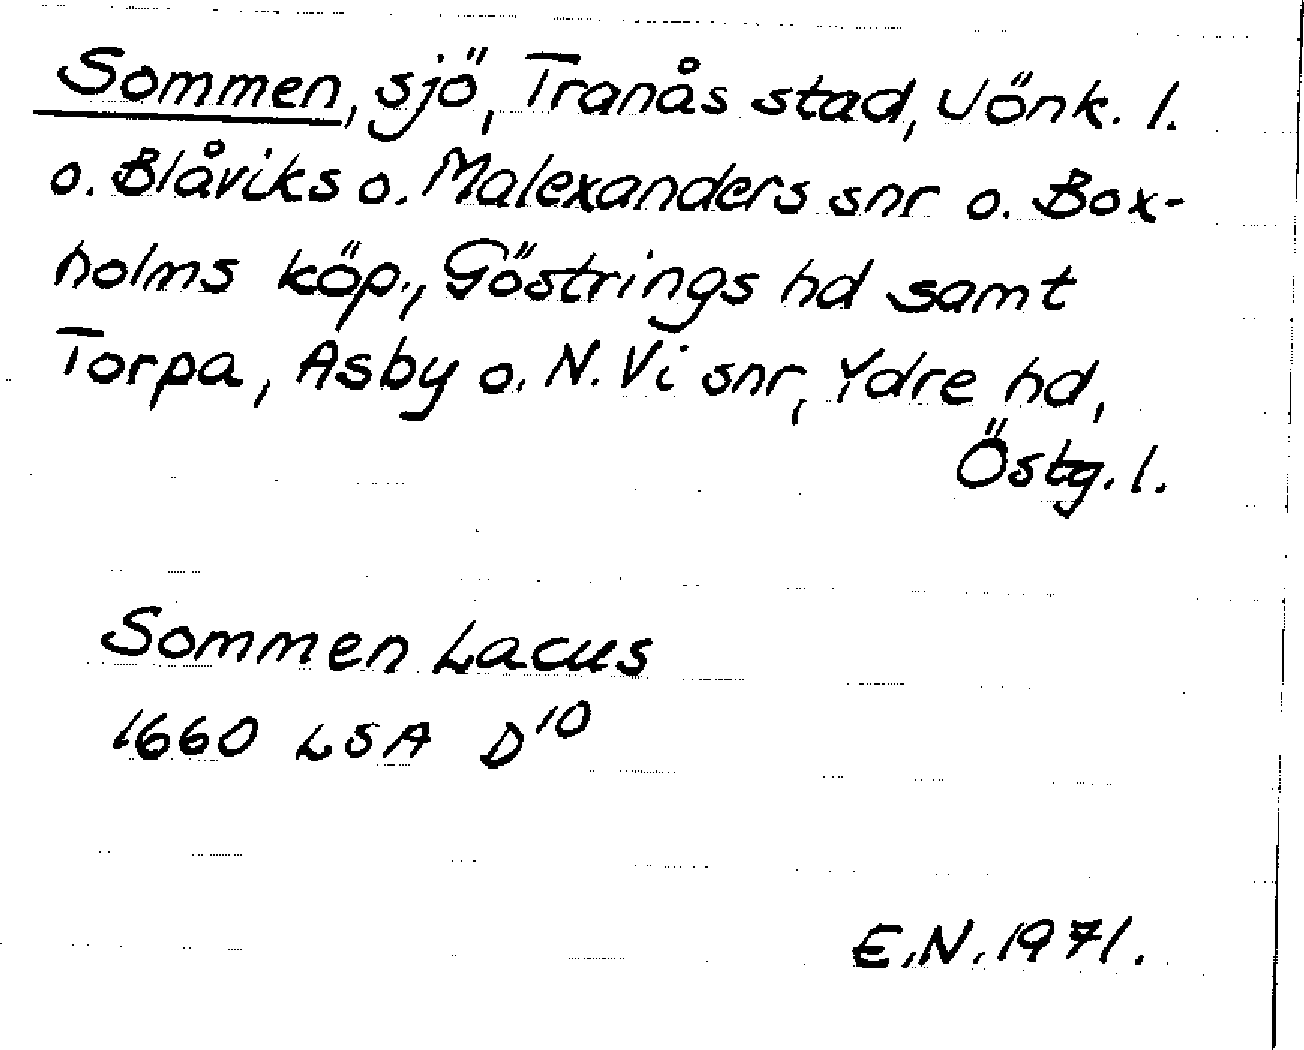 Sommen, sjö, Tranås stad, Jönk. l.
o. Blåviks o. Malexanders snr o. Box-
holms köp., Göstrings hd samt
Torpa, Asby o. N. Vi snr, Ydre hd,
Östg. l.
Sommen Lacus
1660 LSA D10
E.N. 1971.